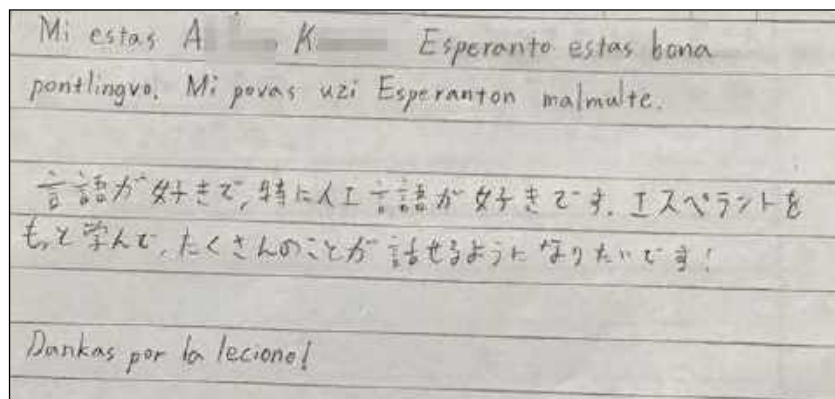 Mi estas A K Esperanto estas bona
pontlingvo. Mi povas uzi Esperanton malmulte.
言語が好きで,特に人工言語が好きです.エスペラントを
もっと学んで,たくさんのことが話せるようになりたいです!
Dankas por la leciono!